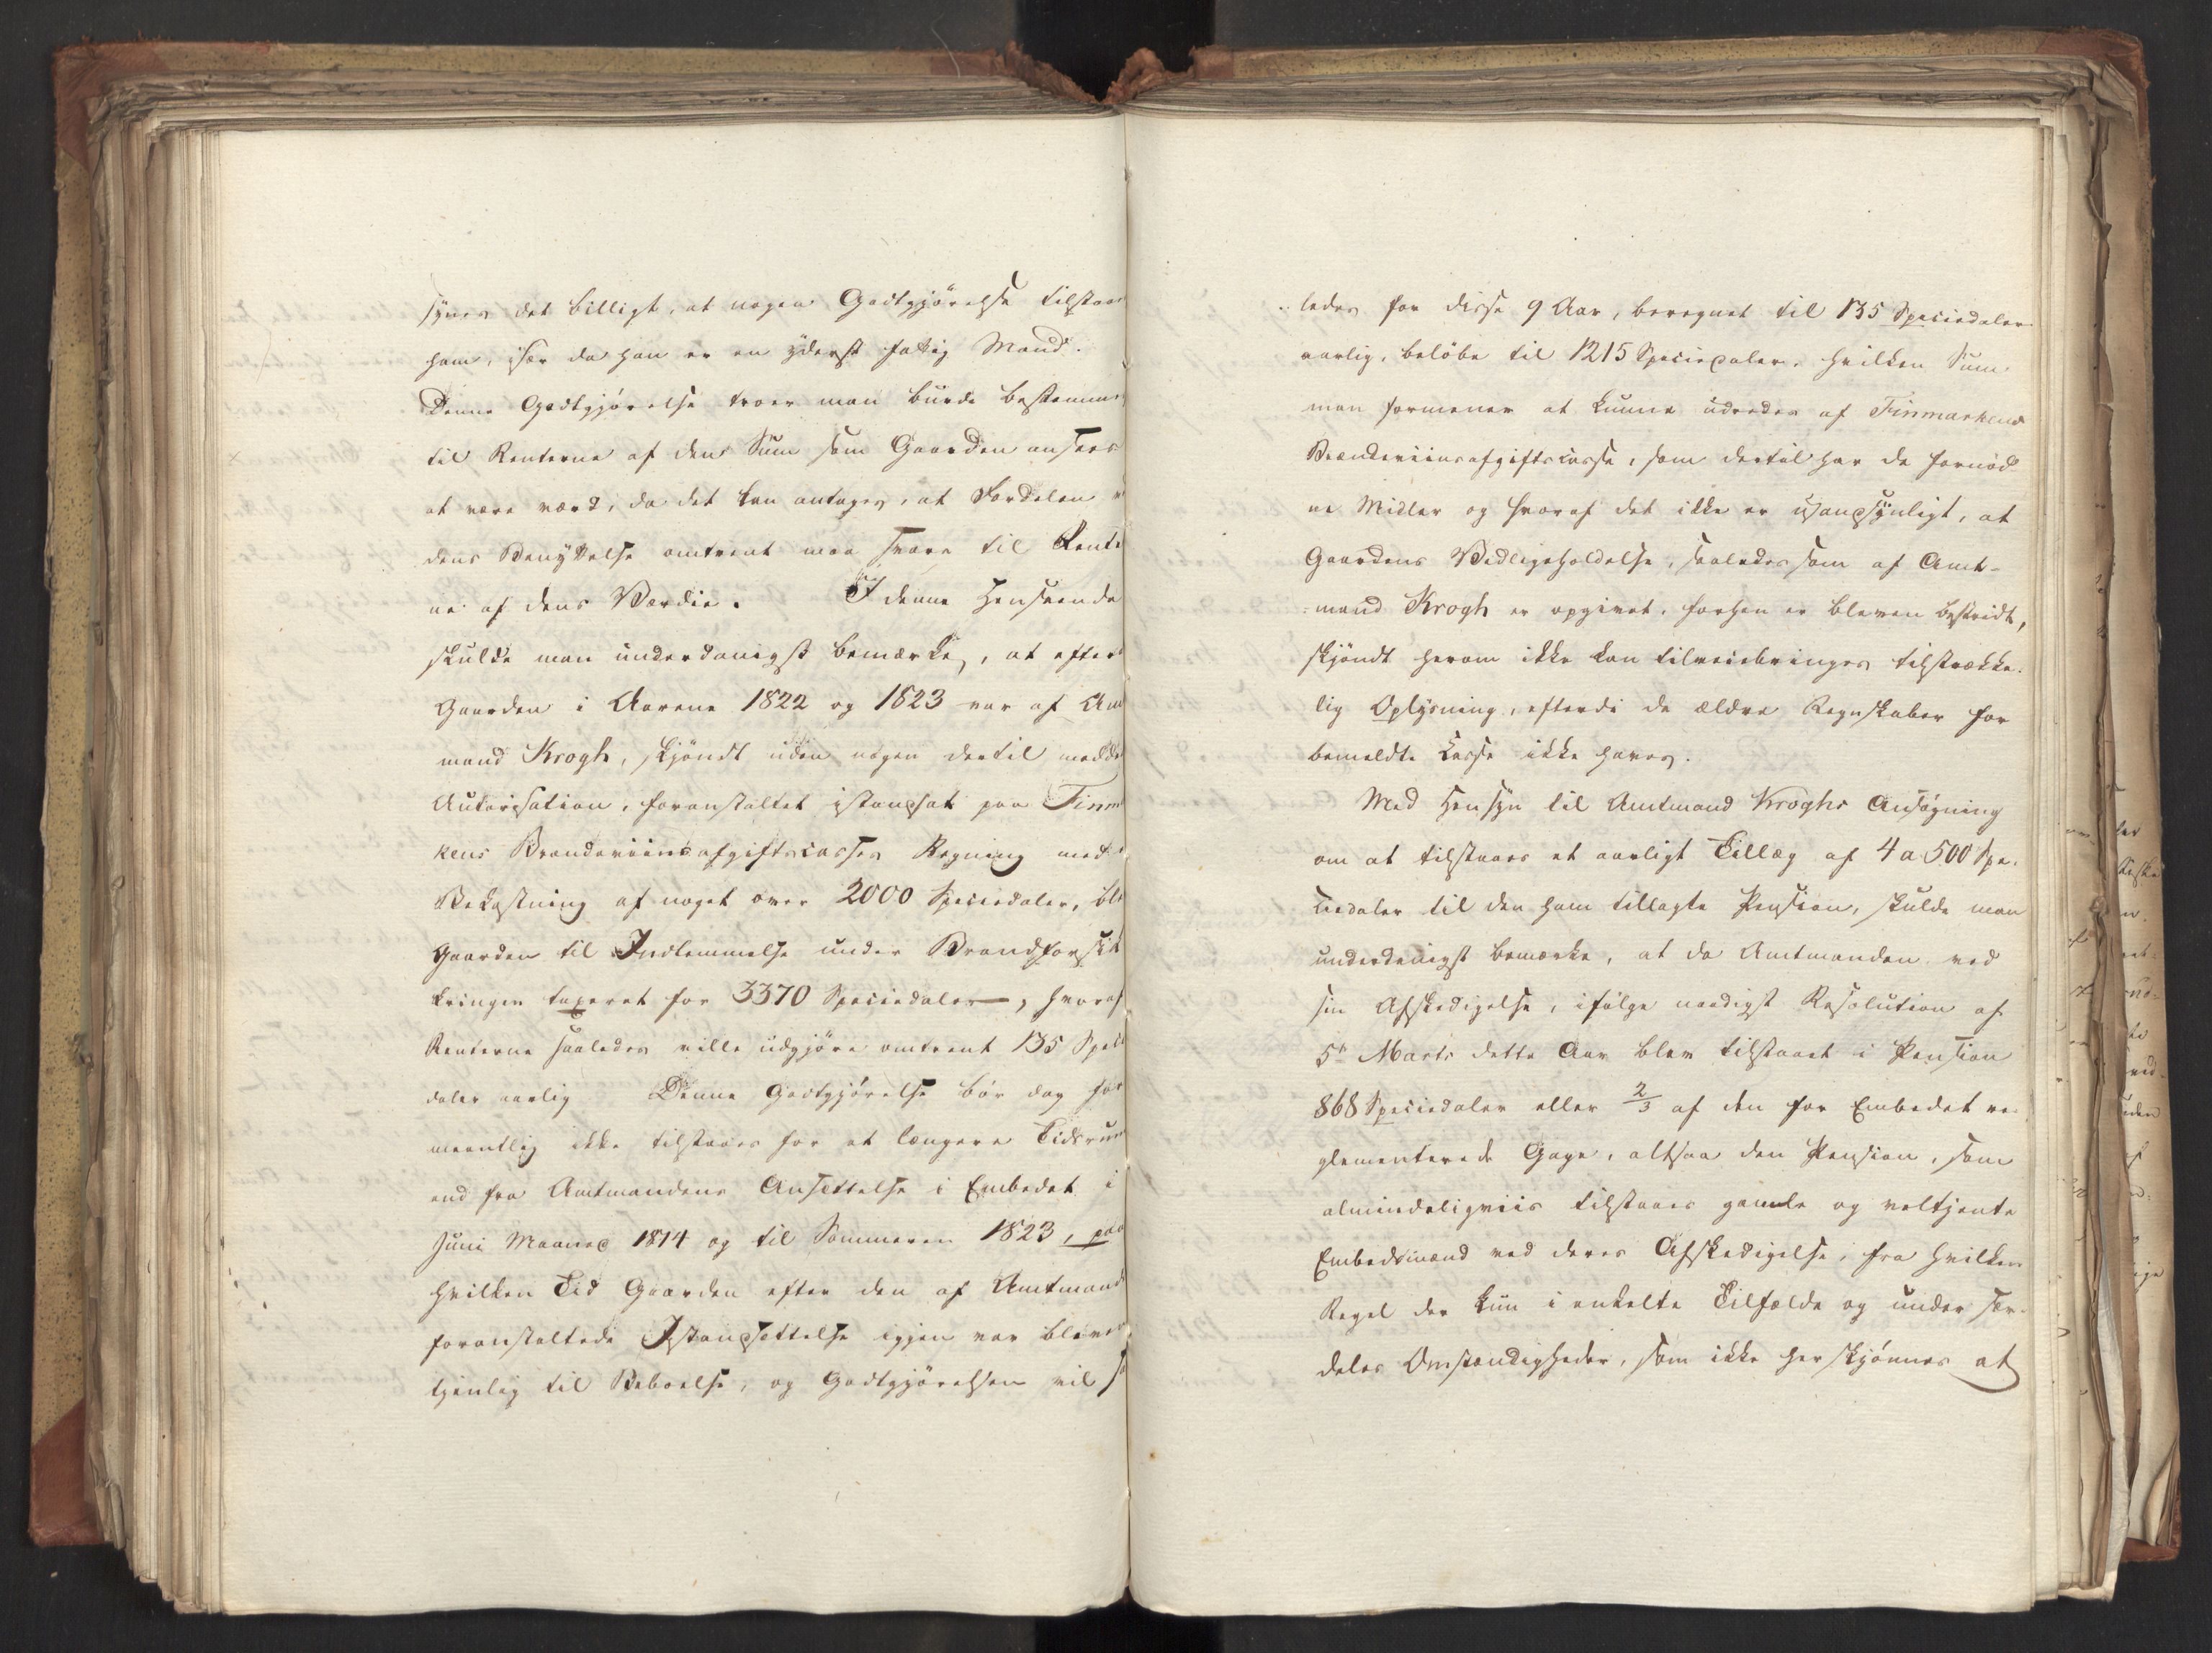 synes det billigt, at nogen Godtgjörelse tilstaaes
ham, især da han er en yderst fattig Mand.
Denne Godtgjörelse troer man burde bestemmes
til Renterne af den Sum som Gaarden ansees
at være værd, da det kan antages, at Fordelen v
dens Benyttelse omtrent maa svare til Rente
ne af dens Værdie. I denne Henseende
skulde man underdanigst bemærke, at efterat
Gaarden i Aarene 1822 og 1823 var af Amt
mand Krogh, skjöndt uden nogen dertil meddelt
Autorisation, foranstaltet istandsat paa Finm
kens Brændeviinsafgiftscasses Regning med
Bekostning af noget over 2000 Speciedaler, blev
Gaarden til Indlemmelse under Brandforsik
kringen taxeret for 3370 Speciedaler, hvoraf
Renterne saaledes ville udgjöre omtrent 135 Specie
daler aarlig Denne Godtgjörelse bör dog for
meentlig ikke tilstaaes for et længere Tidsrum
end fra Amtmandens Ansættelse i Embedet i
Juni Maaned 1814 og til Sommeren 1823, paa
hvilken Tid Gaarden efter den af Amtmanden
foranstaltede Istandsættelse igjen var bleven
tjenlig til Beboelse, og Godtgjörelsen vil saa
ledes for disse 9 Aar, beregnet til 135 Speciedaler
aarlig, belöbe til 1215 Speciedaler, hvilken Sum
man formener at kunne udredes af Finmarkens
Brændeviinsafgiftscasse, som dertil har de fornöd
ne Midler og hvoraf det ikke er usandsynligt, at
Gaardens Vedligeholdelse, saaledes som af Amt-
mand Krogh er opgivet, forhen er bleven bestridt,
skjöndt herom ikke kan tilveiebringes tilstrække-
lig Oplysning, efterdi de ældre Regnskaber for
bemeldte Casse ikke haves.
Med Hensyn til Amtmand Kroghs Ansögning
om at tilstaaes et aarligt Tillæg af 4 a 500 Spe-
ciedaler til den ham tillagte Pension, skulde man
underdanigst bemærke, at da Amtmanden ved
sin Afskedigelse, ifölge naadigst Resolution af
5te Marts dette Aar blev tilstaaet i Pension
868 Speciedaler eller 2/3 af den for Embedet re-
glementerede Gage, altsaa den Pension, som
almindeligviis tilstaaes gamle og veltjente
Embedsmænd ved deres Afskedigelse, fra hvilken
Regel der kun i enkelte Tilfælde og under sær-
deles Omstændigheder, som ikke her skjönnes at